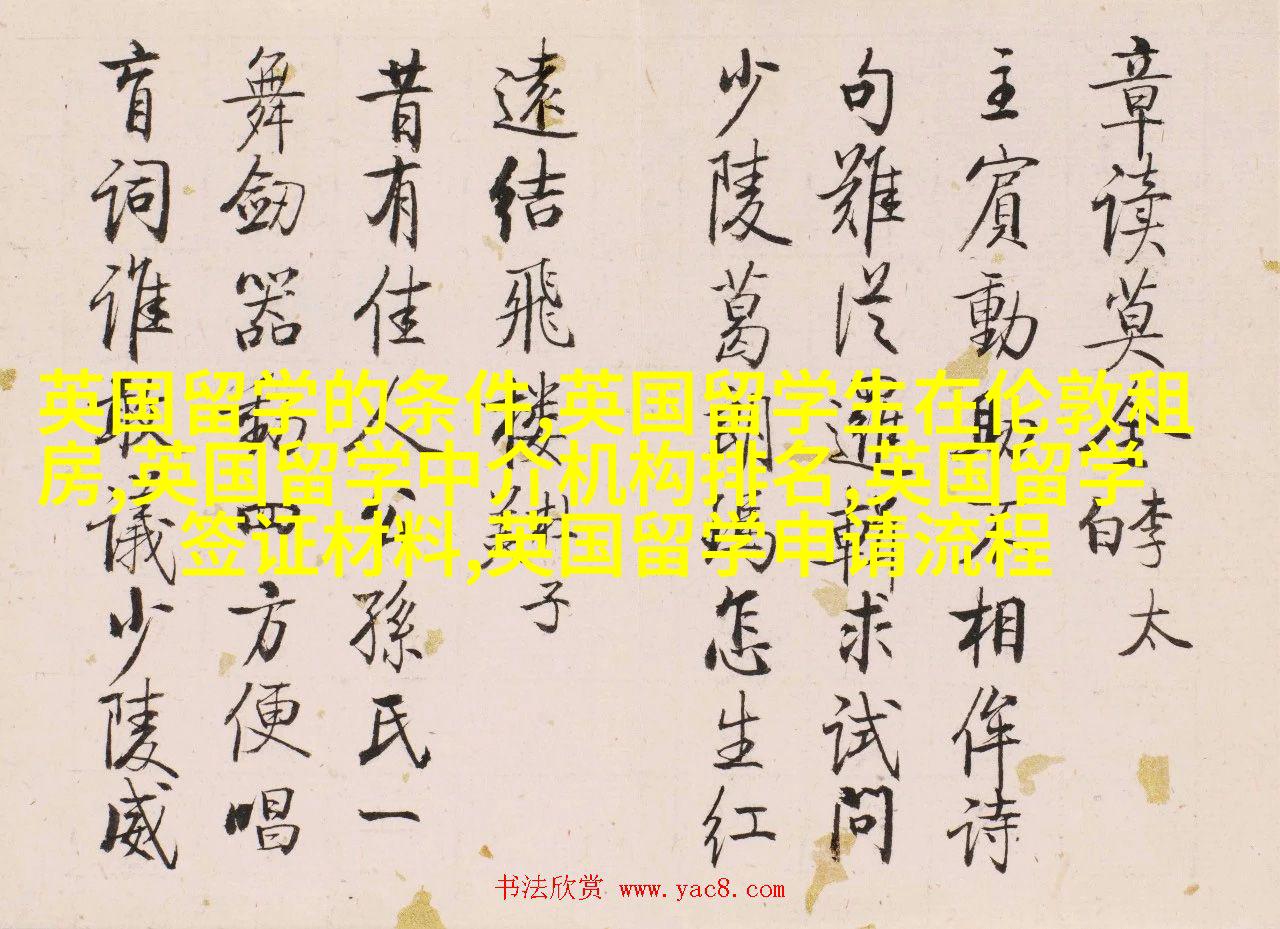 章读莫全李太白
主賓動不相侔诗
句難從邏輯求试問
少陵葛朗瑪怎生红
遠结飛楼子
昔有佳人公孫氏一
舞劒器動四方便唱
盲词谁議少陵威
英国留学的条件,英国留学生在伦敦租
房,英国留学中介机构排名,英国留学
签证材料,英国留学申请流程
书法欣赏 www.yac8.com